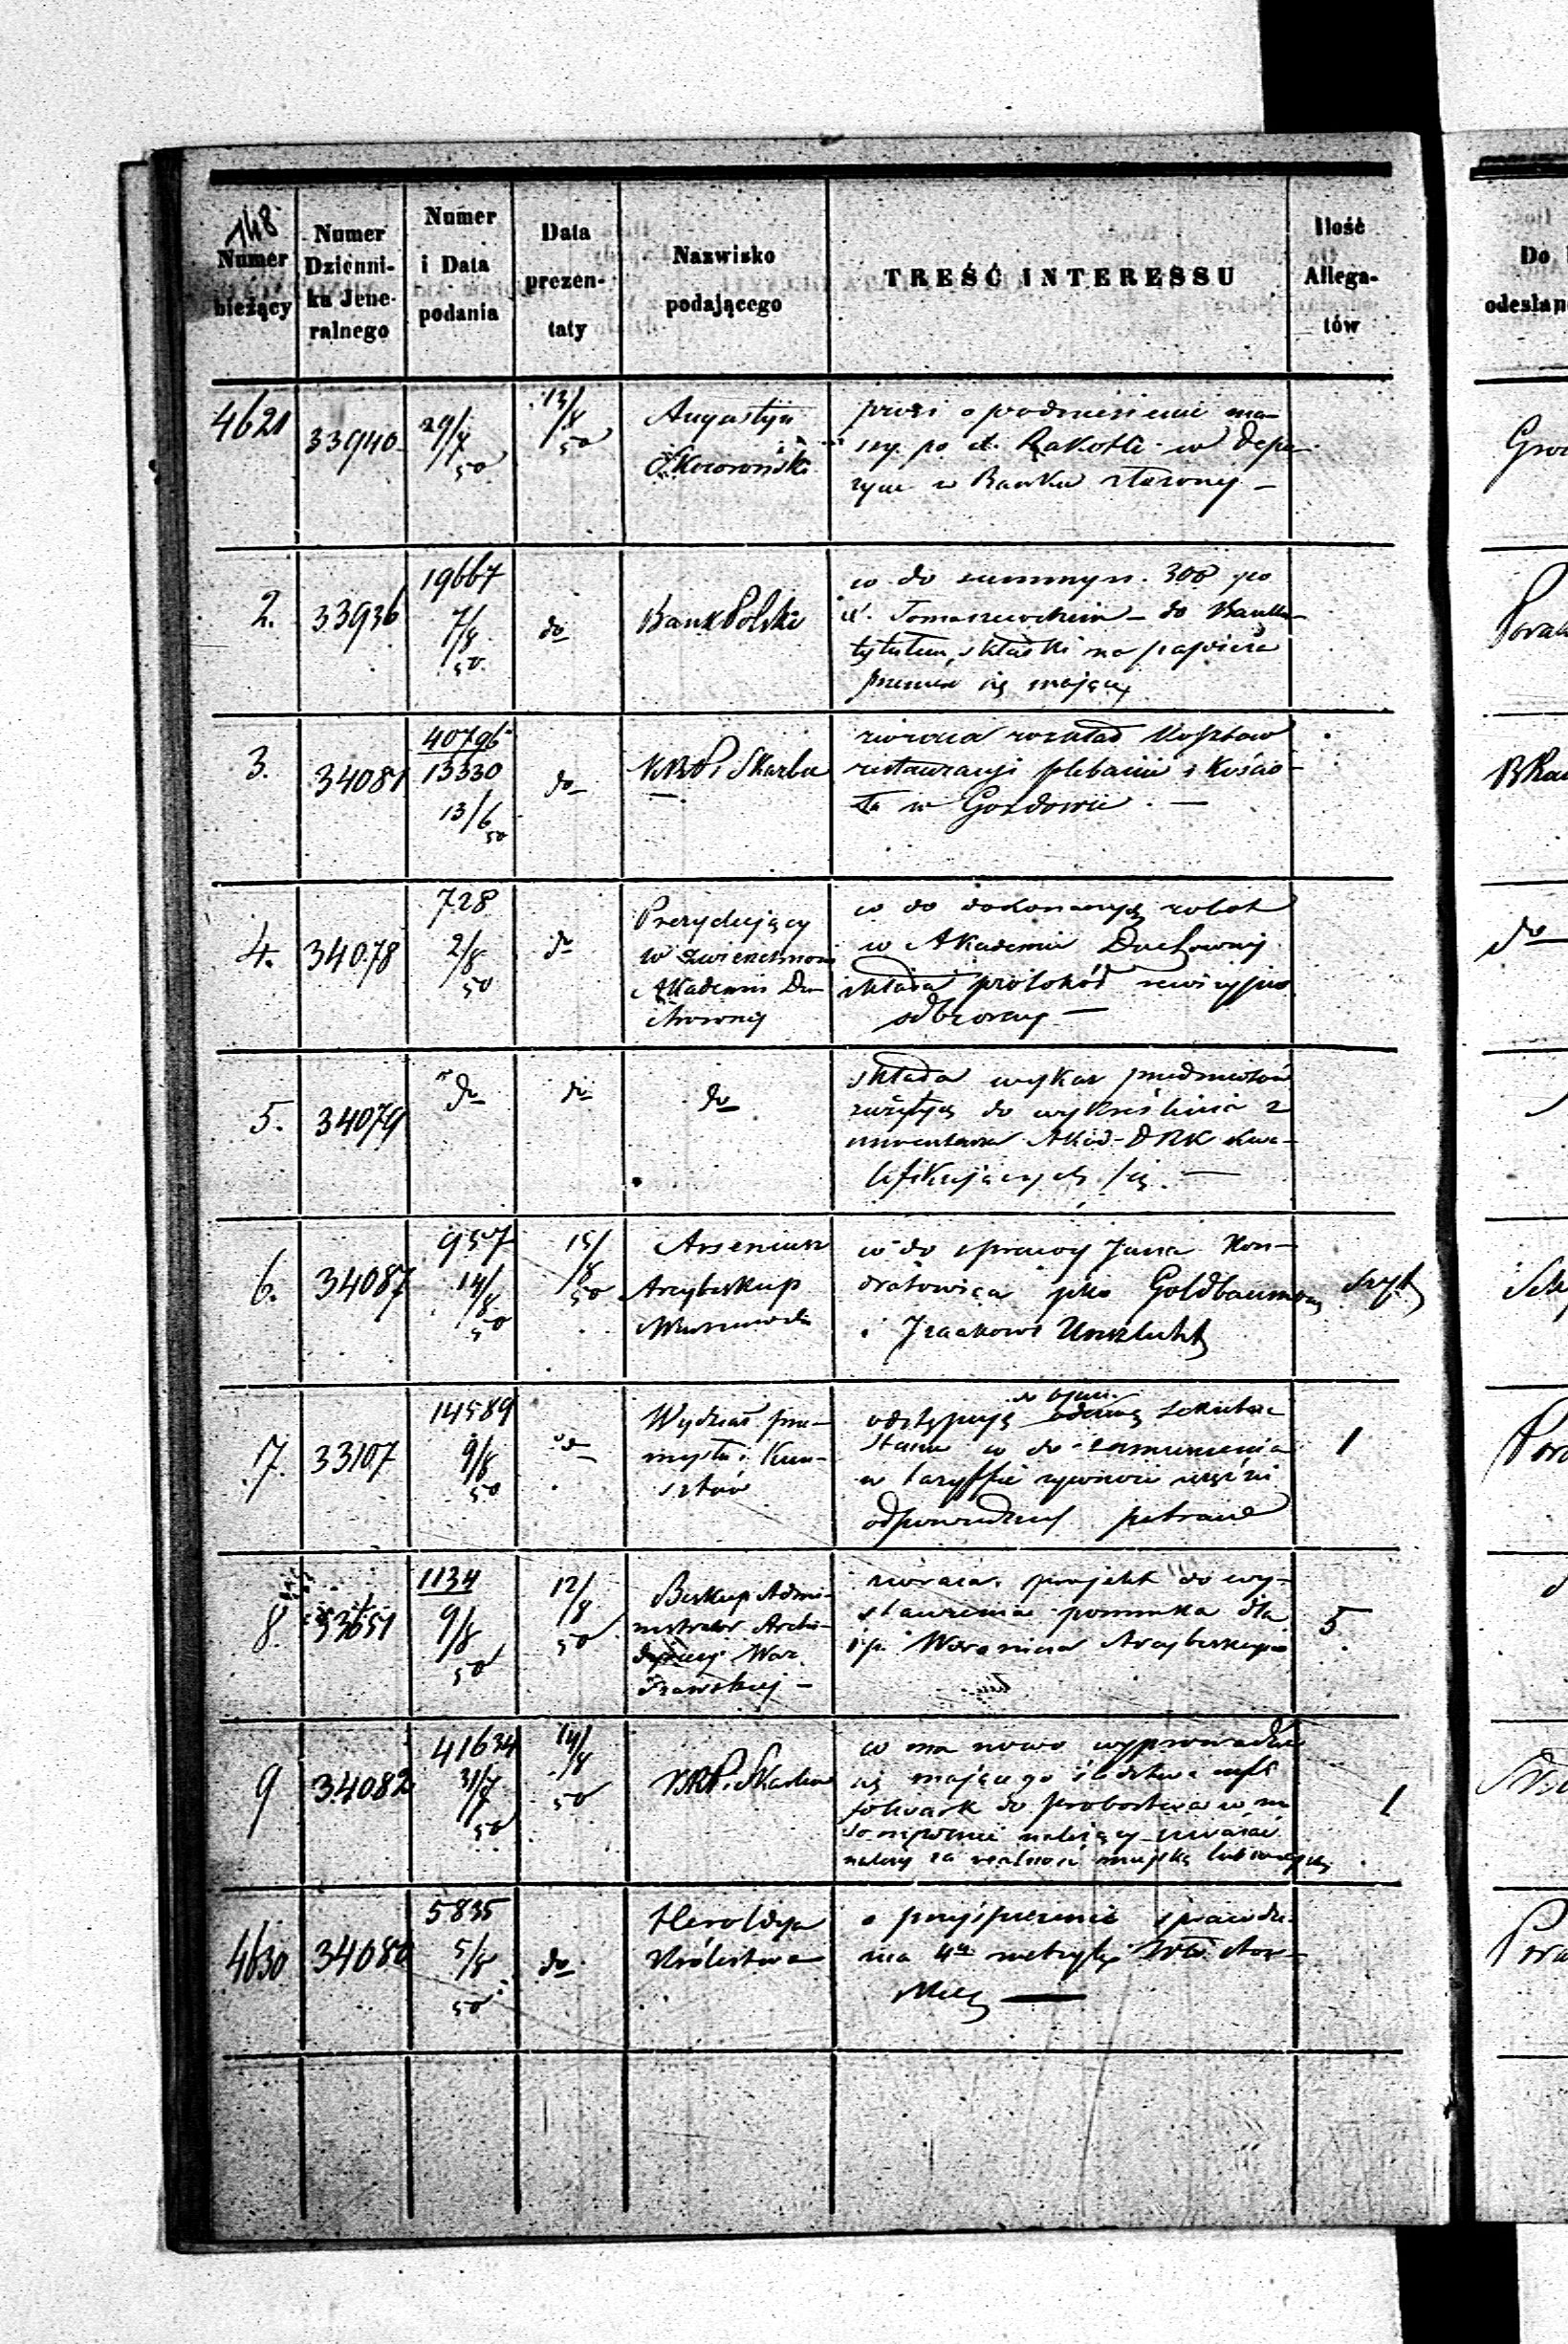 148
Numer bieżący
Numer Dzienni- ka Jene- ralnego
Numer i Data podania
Data prezen- taty
Nazwisko podającego
TREŚĆ INTERESSU
Ilość Allega- tów
Do
odesłan
4621
33940
29/7 50
13/8 50
Augustyn
Skoroński
prosi o podniesienie ma-
sy po
w depo-
zycie w Banku złożonej —
2.
33936
19667
7/8 50
do
Bank Polski
co do summy rs. 300 po
X. Tomaszewskim — do Banku
tytułem składki na
się mającej
3.
34081
40796
13330
13/6 50
do
KRPi Skarbu
zwraca rozkład kosztow
restauracyi plebanii i kościo-
ła w Gozdowie. —
4.
34078
728
2/8 50
do
Prezydujący
w zwierzchności
Akademii Du-
chownej
co do dokonanych robot
w Akademii Duchownej
składa protokół rewizyjno
odbiorczy —
5.
34079
do
do
do
składa wykaz przedmiotów
zużytych do wykreślenia z
inwentarza Akad. DRK kwa-
lifikujących się. —
6.
34087
957
14/8 50
15/8 50
Arseniusz
Arcybiskup
Warszawski
co do sprawy Jana Kon-
dratowicza pko Goldbaumom
i Izaakowi Unszlicht
Szyt
7.
33107
14589
9/8 50
do
Wydział prze-
mysłu i Kun-
sztów
odstępuje odezwę Sekretarza
Stanu co do zamienienia
w taryffie żywności więźni
odpowiedniej potrawie
1
8.
33651
1134
9/8 50
12/8 50
Biskup Admi-
nistrator Archi-
dyecezyi War-
szawskiej —
zwraca projekt do wy-
stawienia pomnika dla
ś. p. Woronicza Arcybiskupa
5
9
34082
41634
31/7 50
14/8 50
KRPi Skarbu
co na nowo wyprowadzić
się mającego śledztwa czyli
folwark do probostwa w m
należący uważać
należy za realność miejską lub
1
4630
34080
5835
5/8 50
do
Heroldya
Królestwa
o przyśpieszenie sprawdze-
nia 4ch metryk